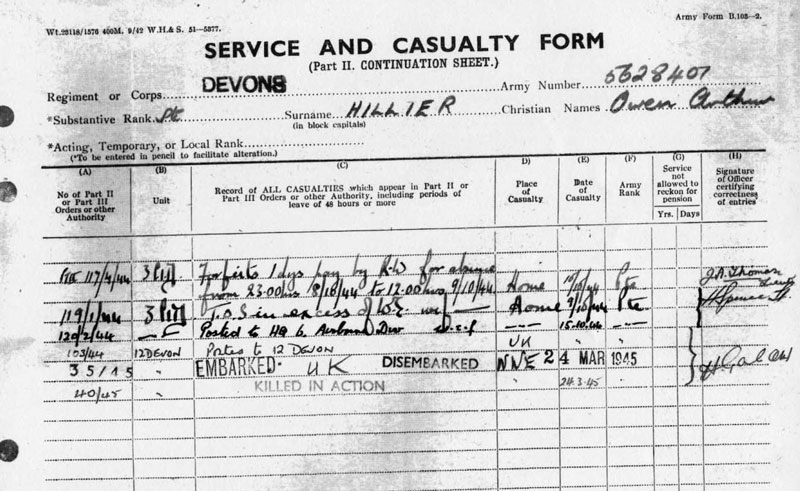 Wt.23118/1576 400M. 9/42 W.H.& S. 51—5377.
Army Form B.103—2.
SERVICE AND CASUALTY FORM
(Part II. CONTINUATION SHEET.)
Regiment or Corps DEVONS Army Number 5628407
*Substantive Rank Pt Surname HILLIER Christian Names Owen Arthur
(in block capitals)
*Acting, Temporary, or Local Rank
(*To be entered in pencil to facilitate alteration.)
(A) (B) (C) (D) (E) (F) (G) (H)
No of Part II or Part III Orders or other Authority
Unit
Record of ALL CASUALTIES which appear in Part II or Part III Orders or other Authority, including periods of leave of 48 hours or more
Place of Casualty
Date of Casualty
Army Rank
Service not allowed to reckon for pension
Yrs. Days
Signature of Officer certifying correctness of entries
117/4/44 Forfeits 1 days pay by R.W for absence Home Pte J.A. Thomas
from 23.00hrs 8/10/44 to 12.00hrs 9/10/44 Lieut
119/1/44 T.O.S in excess of W.E. Home Pte
120/2/44 Posted to HQ 6 Airborne Div 15.10.44
103/44 12DEVON Posted to 12 DEVON UK
35/45 " EMBARKED. UK DISEMBARKED NWE 24 MAR 1945
40/45 " KILLED IN ACTION " 24.3.45